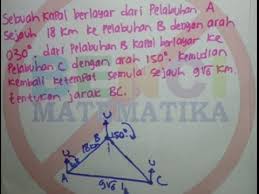 Sebuah Kapal berlayar dari Pelabuhan A
Sejauh 18 Km ke Pelabuhan B dengan arah
030°. dari Pelabuhan B kapal berlayar ke
Pelabuhan C dengan arah 150°. Kemudian
kembali ketempat semula sejauh 9√6 Km.
tentukan jarak BC.
MATEMATIKA
U
B 150°
U
18km
U
A
9√6
C